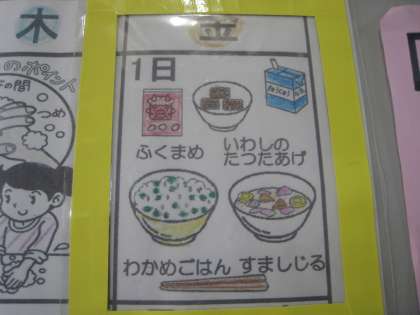 木
金
のポイント
の間
つめ
1日
ぎゅうにゅう
ふくまめ
いわしの
たつたあげ
わかめごはん
すましじる